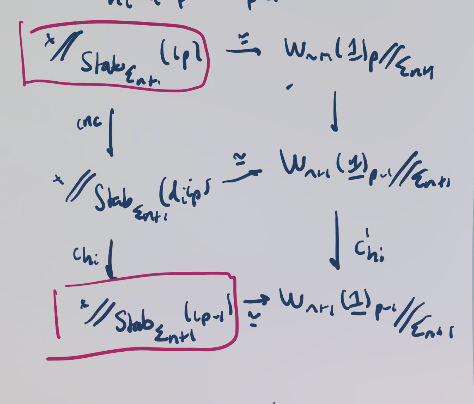 *// Stab_{Σ_{n+1}}(i_p) ≅→ W_{n+1}(1)_p//Σ_{n+1}
inc ↓ ↓
*// Stab_{Σ_{n+1}}(d_i i_p) ≅ W_{n+1}(1)_{p-1}//Σ_{n+1}
c_{h_i} ↓ ↓ c'_{h_i}
*// Stab_{Σ_{n+1}}(i_{p-1}) →≅ W_{n+1}(1)_{p-1}//Σ_{n+1}